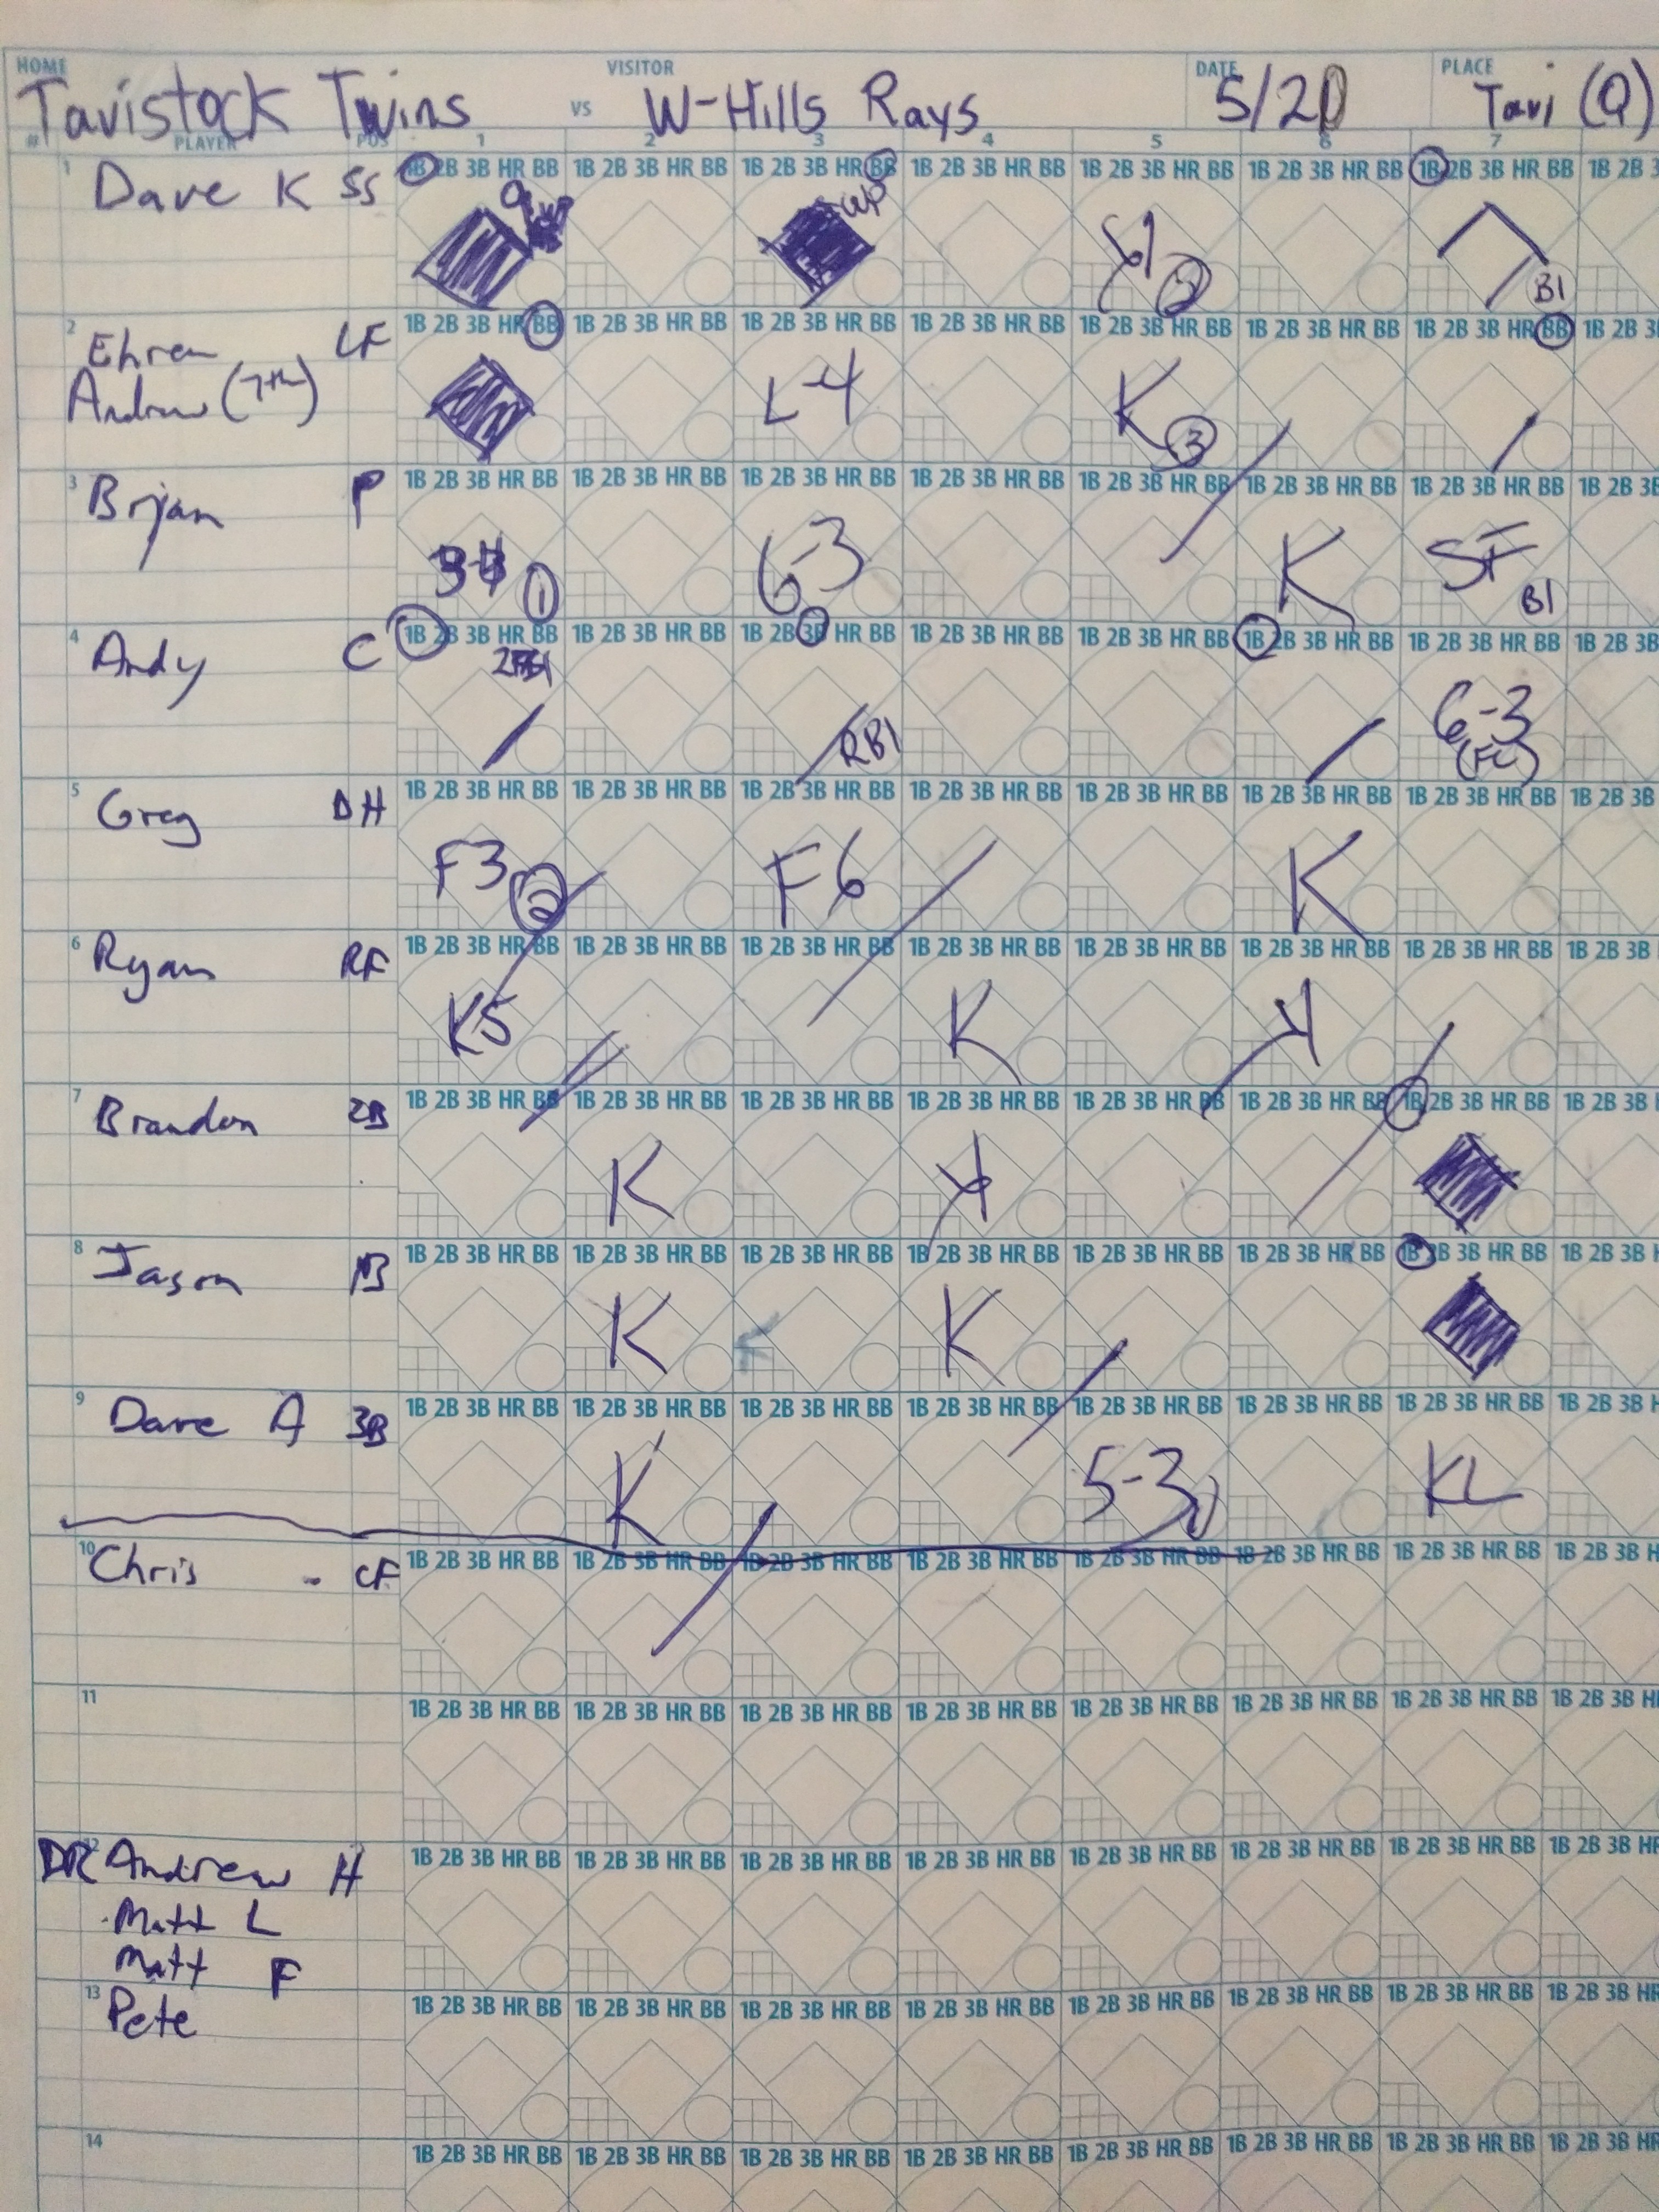 HOME VISITOR DATE PLACE
Tavistock Twins VS W-Hills Rays 5/20 Tavi (Q)
# PLAYER POS 1 2 3 4 5 6 7
1 1B 2B 3B HR BB 1B 2B 3B HR BB 1B 2B 3B HR BB 1B 2B 3B HR BB 1B 2B 3B HR BB 1B 2B 3B HR BB 1B 2B 3B HR BB 1B 2B 3
Dave K SS 9 WP 61 2 BI
2 1B 2B 3B HR BB 1B 2B 3B HR BB 1B 2B 3B HR BB 1B 2B 3B HR BB 1B 2B 3B HR BB 1B 2B 3B HR BB 1B 2B 3B HR BB 1B 2B 3
Ehren LF
Andrew (7th) L-4 K 3
3 1B 2B 3B HR BB 1B 2B 3B HR BB 1B 2B 3B HR BB 1B 2B 3B HR BB 1B 2B 3B HR BB 1B 2B 3B HR BB 1B 2B 3B HR BB 1B 2B 3B
Bryan P 1 6-3 K SF BI
4 1B 2B 3B HR BB 1B 2B 3B HR BB 1B 2B 3B HR BB 1B 2B 3B HR BB 1B 2B 3B HR BB 1B 2B 3B HR BB 1B 2B 3B HR BB 1B 2B 3B
Andy C RBI 6-3 (FC)
5 1B 2B 3B HR BB 1B 2B 3B HR BB 1B 2B 3B HR BB 1B 2B 3B HR BB 1B 2B 3B HR BB 1B 2B 3B HR BB 1B 2B 3B HR BB 1B 2B 3B
Greg DH F3 2 F6 K
6 1B 2B 3B HR BB 1B 2B 3B HR BB 1B 2B 3B HR BB 1B 2B 3B HR BB 1B 2B 3B HR BB 1B 2B 3B HR BB 1B 2B 3B HR BB 1B 2B 3B
Ryan RF K5 K K
7 1B 2B 3B HR BB 1B 2B 3B HR BB 1B 2B 3B HR BB 1B 2B 3B HR BB 1B 2B 3B HR BB 1B 2B 3B HR BB 1B 2B 3B HR BB 1B 2B 3B
Brandon 2B K K
8 1B 2B 3B HR BB 1B 2B 3B HR BB 1B 2B 3B HR BB 1B 2B 3B HR BB 1B 2B 3B HR BB 1B 2B 3B HR BB 1B 2B 3B HR BB 1B 2B 3B H
Jason 1B K K K
9 1B 2B 3B HR BB 1B 2B 3B HR BB 1B 2B 3B HR BB 1B 2B 3B HR BB 1B 2B 3B HR BB 1B 2B 3B HR BB 1B 2B 3B HR BB 1B 2B 3B H
Dave A 3B K 5-3 1 KL
10 1B 2B 3B HR BB 1B 2B 3B HR BB 1B 2B 3B HR BB 1B 2B 3B HR BB 1B 2B 3B HR BB 1B 2B 3B HR BB 1B 2B 3B HR BB 1B 2B 3B H
Chris - CF
11 1B 2B 3B HR BB 1B 2B 3B HR BB 1B 2B 3B HR BB 1B 2B 3B HR BB 1B 2B 3B HR BB 1B 2B 3B HR BB 1B 2B 3B HR BB 1B 2B 3B H
12 1B 2B 3B HR BB 1B 2B 3B HR BB 1B 2B 3B HR BB 1B 2B 3B HR BB 1B 2B 3B HR BB 1B 2B 3B HR BB 1B 2B 3B HR BB 1B 2B 3B HR
DR Andrew H
Matt L
Matt F
13 1B 2B 3B HR BB 1B 2B 3B HR BB 1B 2B 3B HR BB 1B 2B 3B HR BB 1B 2B 3B HR BB 1B 2B 3B HR BB 1B 2B 3B HR BB 1B 2B 3B HR
Pete
14 1B 2B 3B HR BB 1B 2B 3B HR BB 1B 2B 3B HR BB 1B 2B 3B HR BB 1B 2B 3B HR BB 1B 2B 3B HR BB 1B 2B 3B HR BB 1B 2B 3B HR